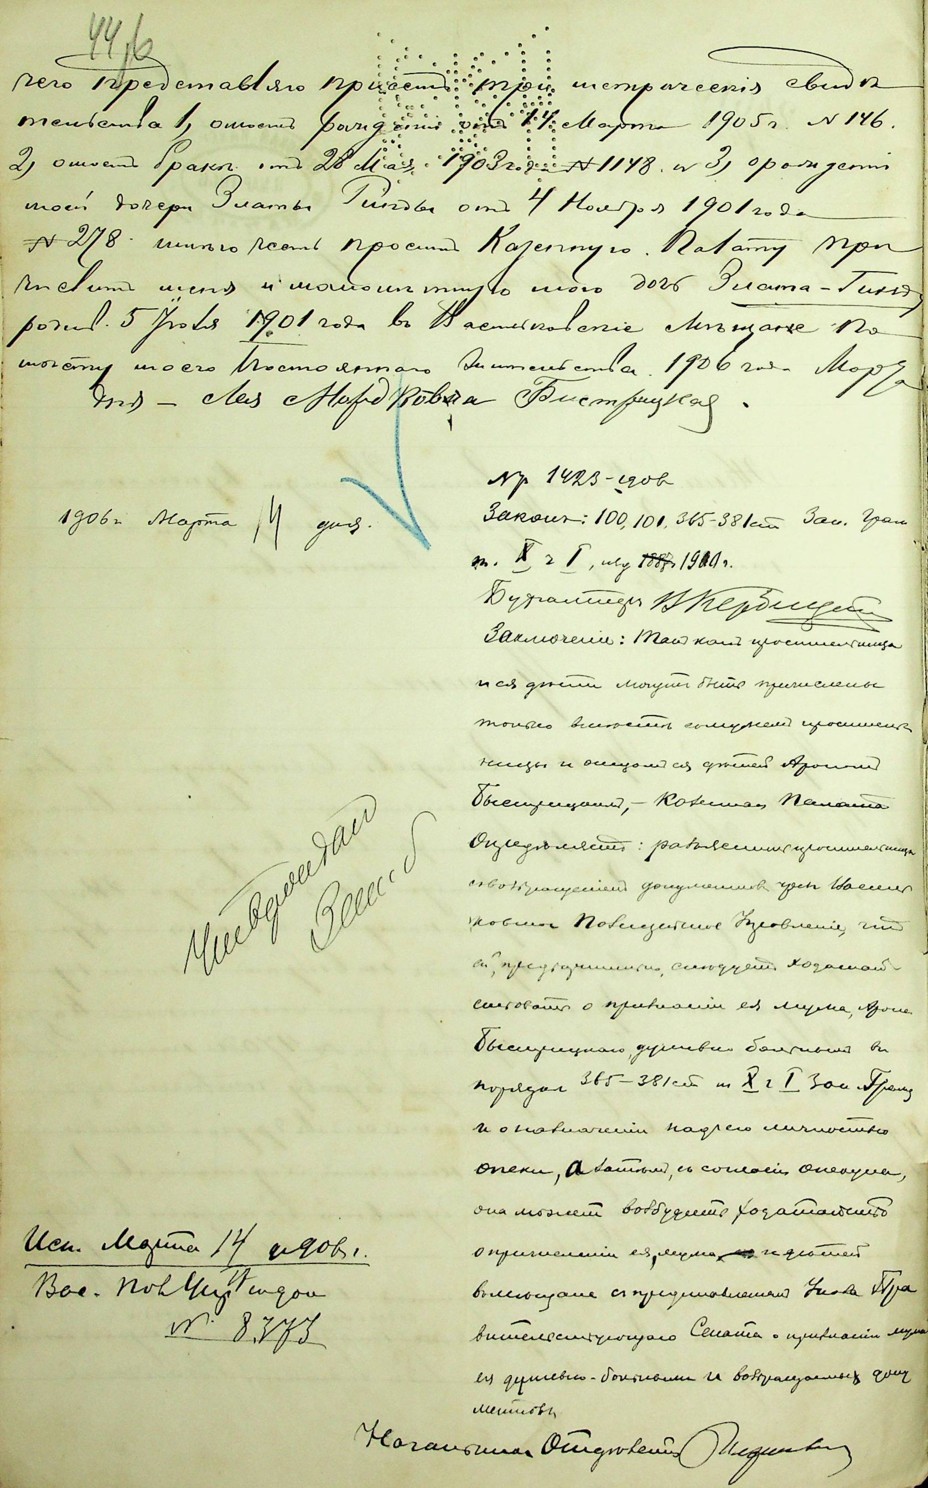 44 б
чего представляю при семъ три метрическія свидѣ
тельства 1, о моемъ рожденіи отъ 14 Марта 1905 г. N 146.
2) о моемъ бракѣ отъ 28 Мая 1903 года N 1148. и 3, о рожденіи
моей дочери Златы Гинды отъ 4 Ноября 1901 года
N 278. имѣю честь просить Казенную Палату при
числить меня и малолѣтнюю мою дочь Злата-Гинда
родив. 5 1901 года въ Мѣщане по
мѣсту моего постояннаго жительства. 1906 года Марта
дня — Лея Мордковна Бистрицкая.
1906 г. Марта 14 дня.
Нр 1423-1906
Законъ: 100, 101, 365-381 ст Зак. Граж
т. X ч I, изд 1900 г.
Бухгалтеръ
Заключеніе: Такъ какъ просительница
и ея дѣти могутъ быть причислены
только вмѣстѣ съ мужемъ проситель
ницы и отцомъ ея дѣтей Арономъ
Быстрицкимъ, — Казенная Палата
Опредѣляетъ: разъяснить просительницѣ
съ возвращеніемъ документовъ чрезъ Василь
ковское Полицейское Управленіе, что
ей, предварительно, слѣдуетъ ходатай-
ствовать о признаніи ея мужа, Арона
Быстрицкаго, душевно больнымъ въ
порядкѣ 365-381 ст т X ч I Зак Гражд
и о назначеніи надъ его личностью
опеки, а затѣмъ, съ согласія опекуна,
она можетъ возбудить ходатайство
о причисленіи ея, мужа и дѣтей
въ мѣщане съ представленіемъ Указа Пра
вительствующаго Сената о признаніи мужа
ея душевно-больнымъ и возвращаемыхъ доку
ментовъ
Исп. Марта 14 1906 г.
Вас. Пол Упр
№ 8373
Начальникъ Отдѣленія